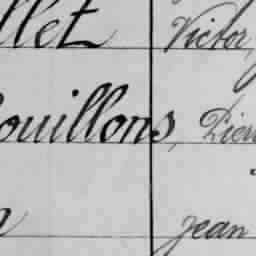 llet Victor,
ouillons, Pier
n Jean